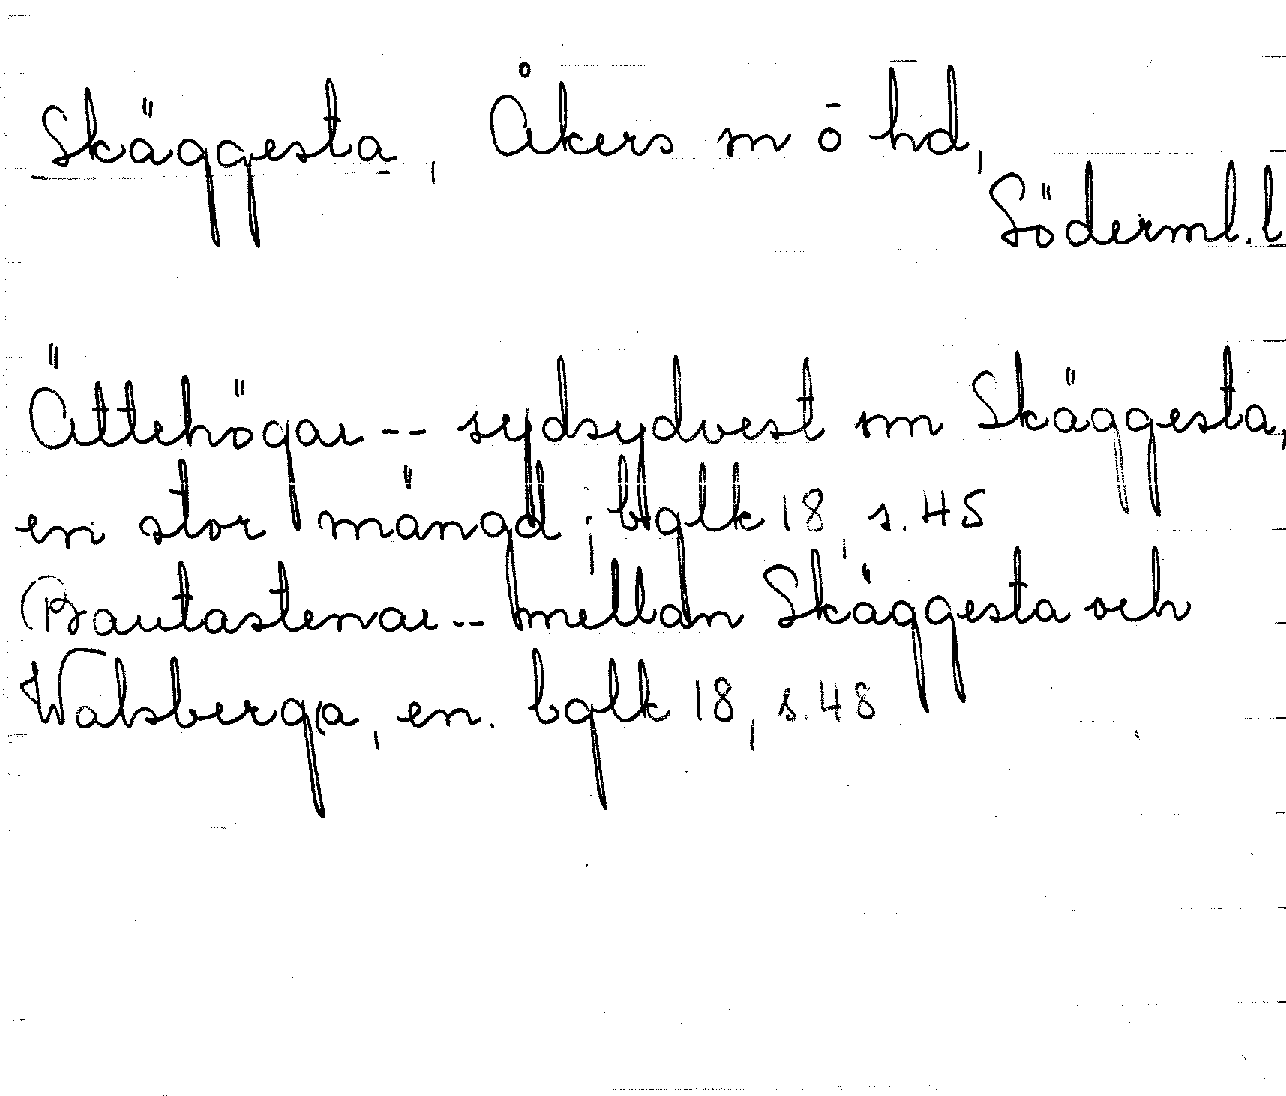 Skäggesta, Åkers m ō hd,
Söderml. l
Ättehögar -- sydsydvest om Skäggesta,
en stor mängd; bglk 18, s. 45
Bautastenar -- mellan Skäggesta och
Walsberga, en. bglk 18, s. 48